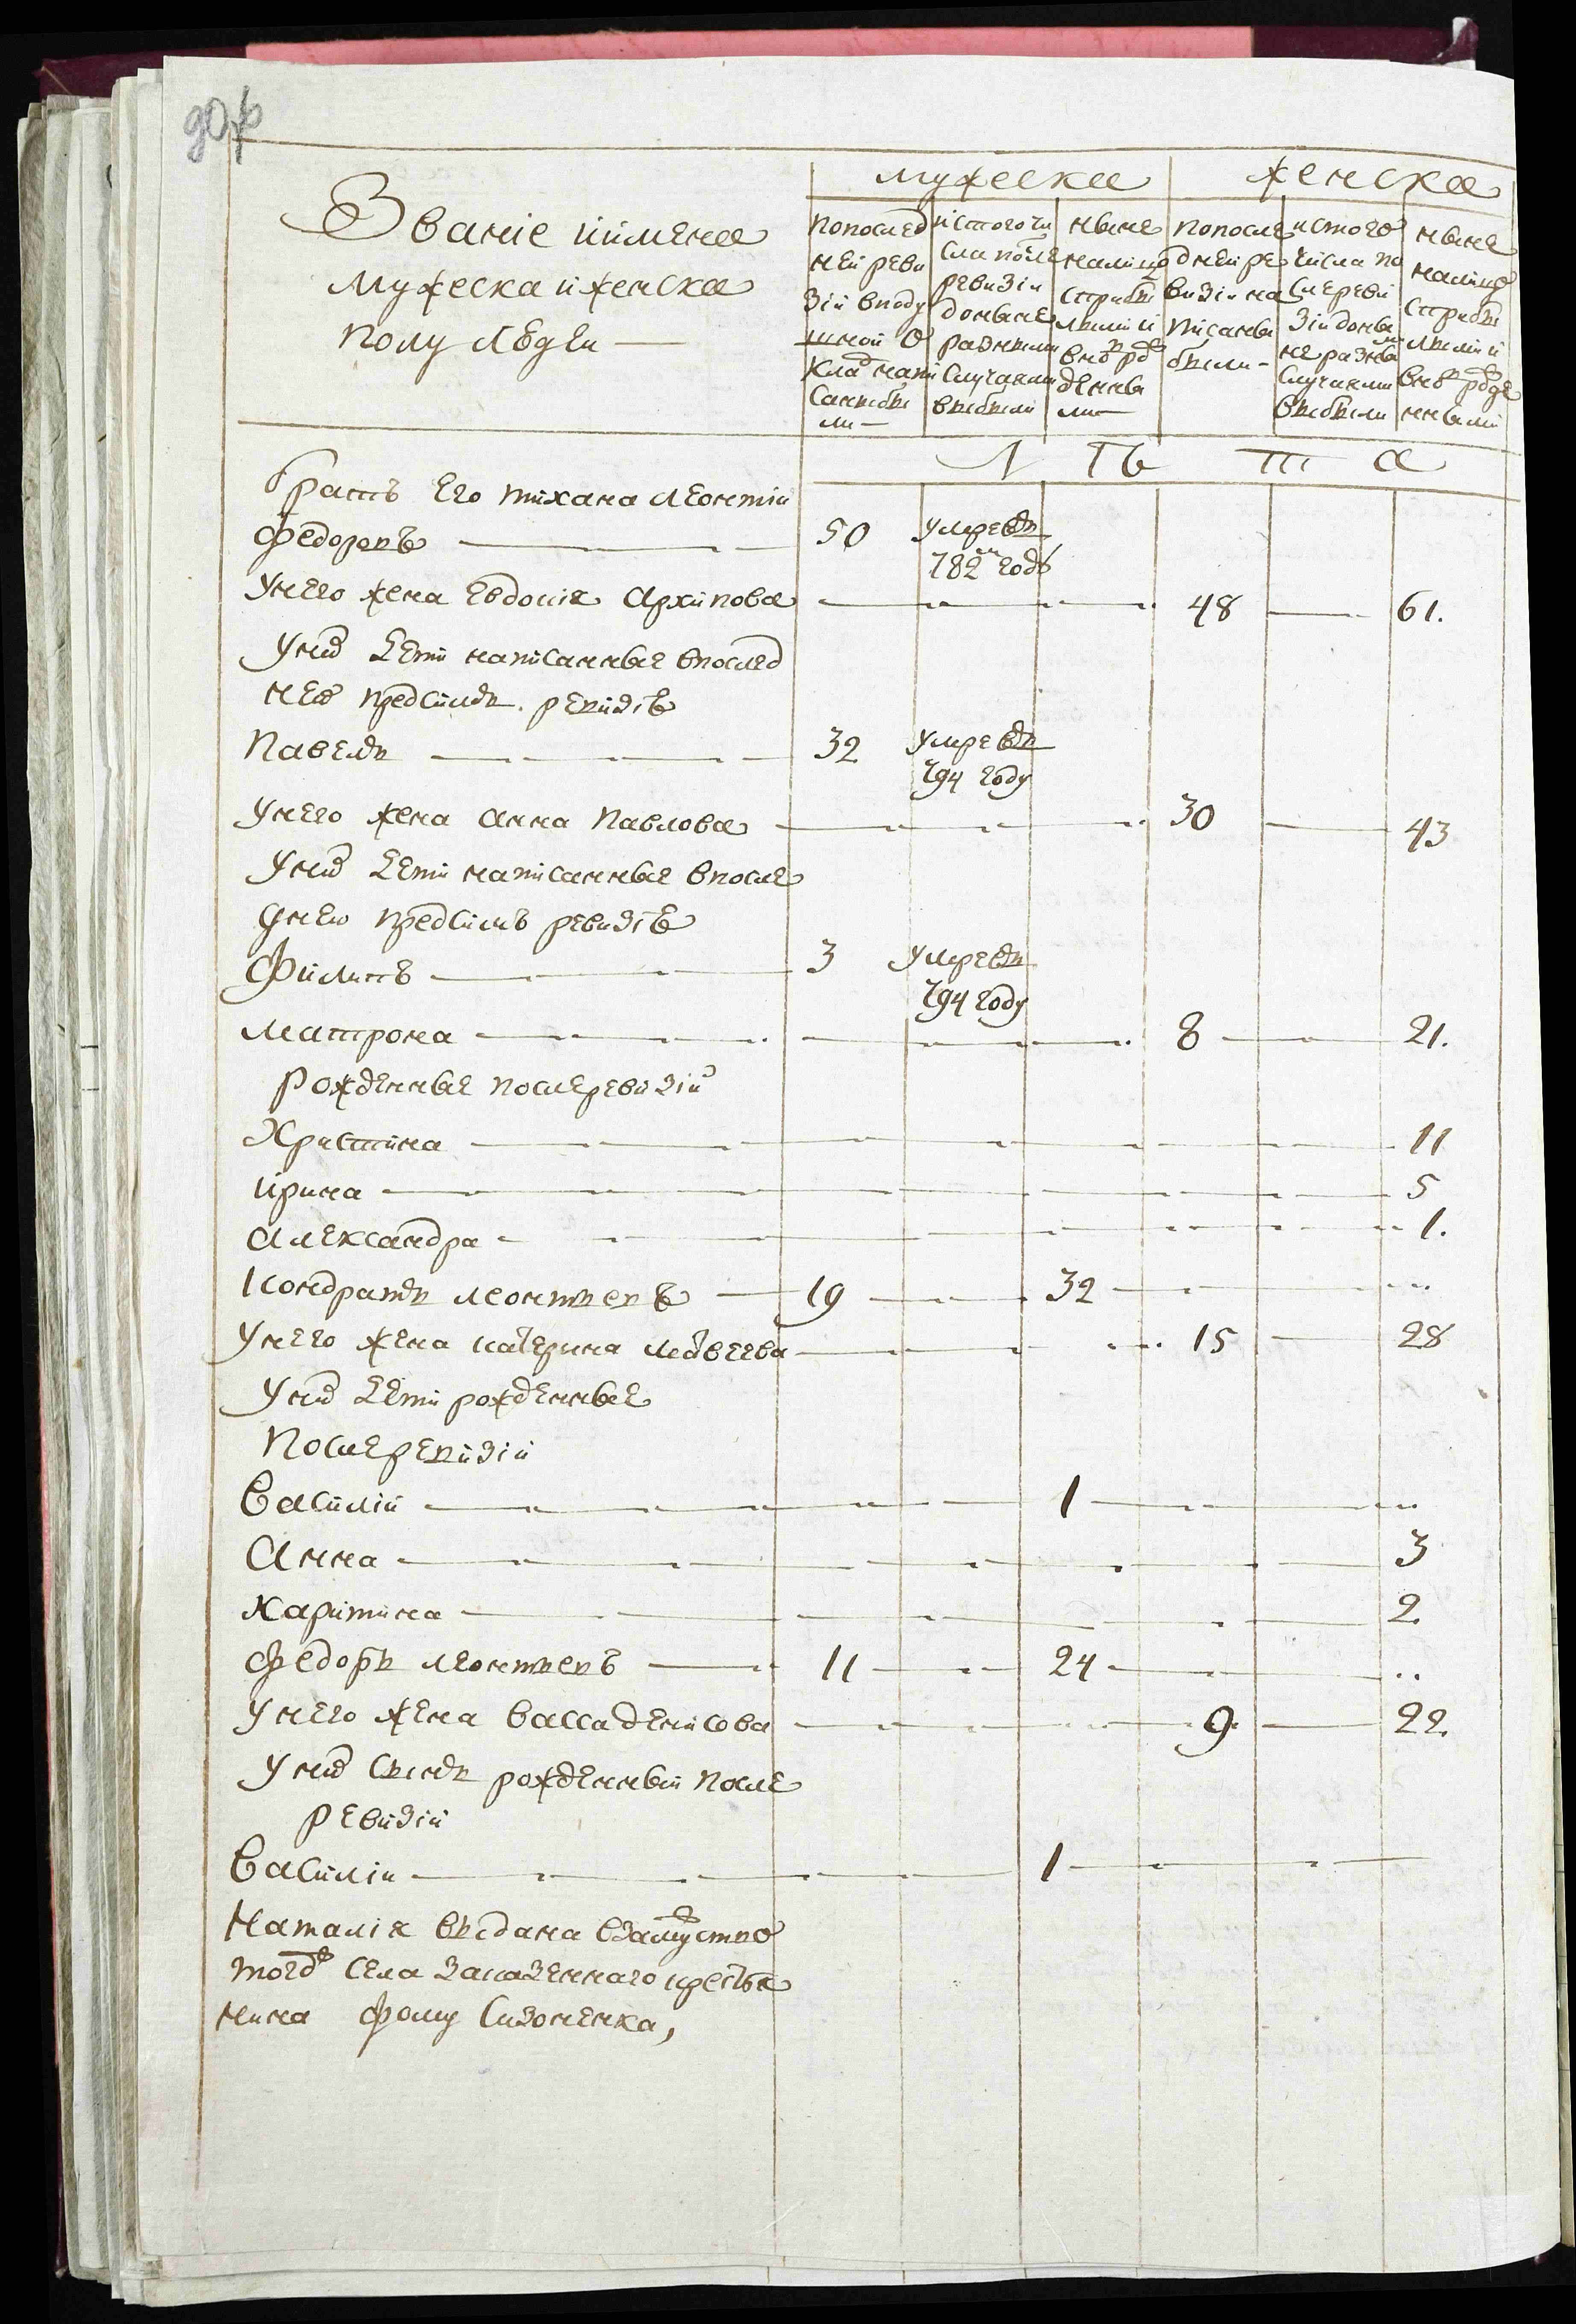 90
Мужеска Женска
Званіе иимена
Мужеска иженска
полу людеи
попослед
ней реви
зіи вподу
шной о
клад напи
санибы
ли
истогочи
сла после
ревизіи
доныне
разными
случаями
выбыли
ныне
налицо
сприбы
лыми и
вновь рож
денны
ми
попосле
дней ре
визіи на
писаны
были
истого
числа по
сле реви
зіи доны
не разны
случаями
выбыли
ныне
налицо
сприбы
лыми и
вновь рожде
нными
Л Ѣ Т А
братъ его тихана леонтіи
федоровъ 50 умре въ
782 годѣ
Унего жена Евдокія Архипова 48 61.
Уних дети написанные впослед
нею предсимъ ревизіѣ
Павелъ 32 умре въ
794 году
Унего жена анна Павлова 30 43
Уних дети написанные впосле
днею предсимъ ревизіѣ
Филипъ 3 Умре въ
794 году
матрона 8 21.
рожденные послеревизіи
Христина 11
ирина 5
александра 1.
Кондратъ леонтьевъ 19 32
Унего жена катерина матвеева 15 28
Уних дети рожденные
послеревизіи
василіи 1
Анна 3
харитина 2.
федоръ леонтьевъ 11 24
Унего жена васса денисова 9. 22.
Уних сынъ рожденный после
ревизіи
василіи 1
Наталія выдана взамуство
тогож села заказеннаго крестья
нина фому Сизоненка,